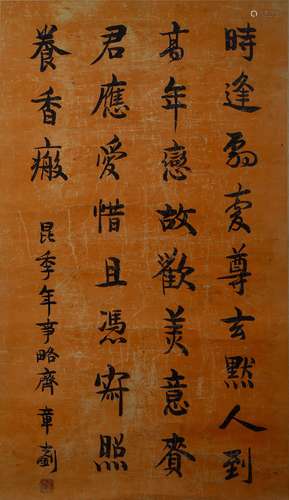 時逢易愛尊玄默人到
高年戀故歡美意賚
君應愛惜且馮寄照
養香瘢
昆季年亨略齊章劉